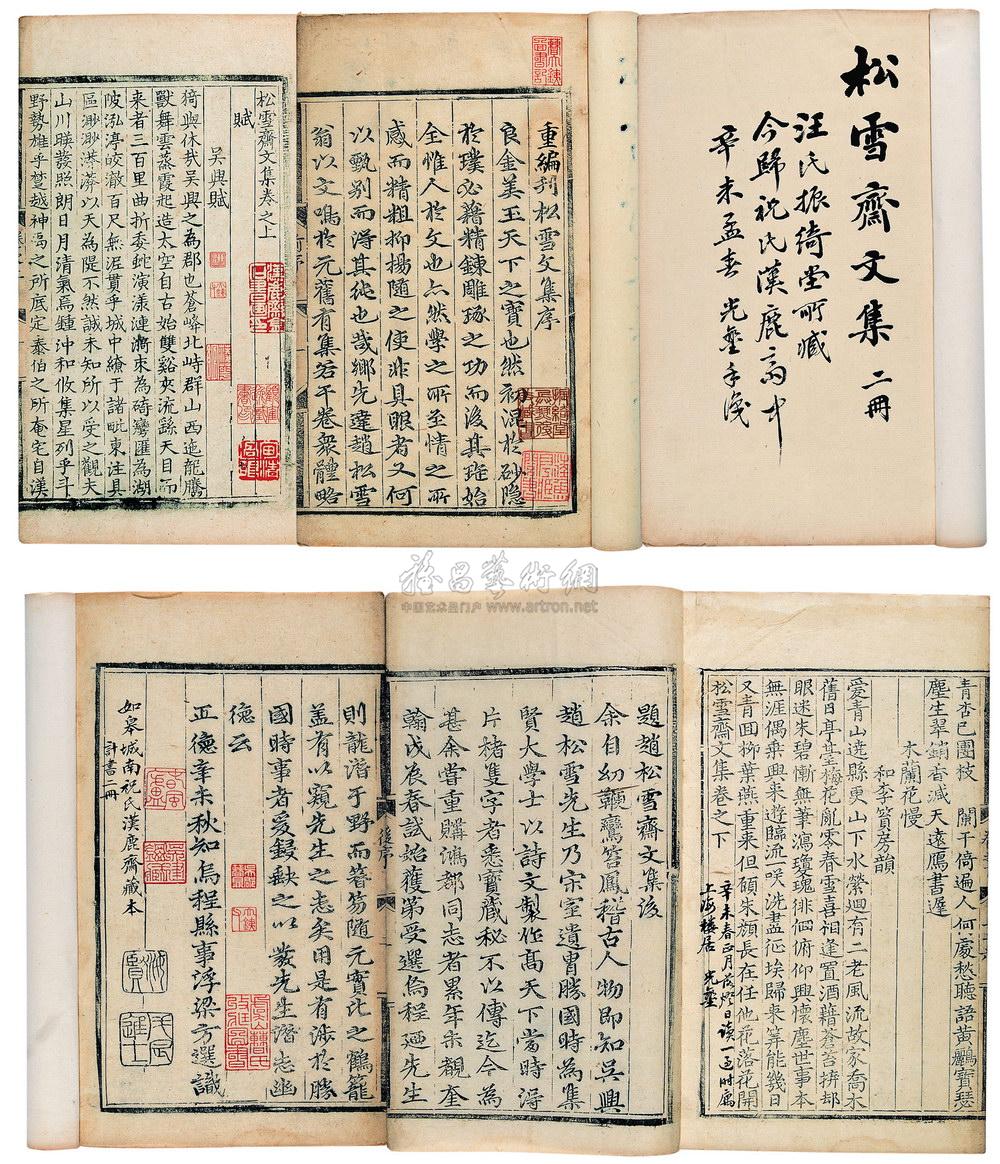 松雪齋文集 二冊
汪氏振綺堂所藏
今歸祝氏漢鹿齋中
辛未孟春 光
重編刊松雪文集序
良金美玉天下之寶也然初混於砂隱
於璞必藉精鍊雕琢之功而後其
全惟人於文也亦然學之所至情之所
感而精粗抑揚隨之使非具眼者又何
以甄別而得其純也哉鄉先達趙松雪
翁以文鳴於元舊有集若干卷衆體略
松雪齋文集卷之上
賦
吳興賦
猗與休哉吳興之為郡也蒼峰北峙群山西迤龍騰
獸舞雲蒸霞起造太空自古始雙谿夾流繇天目而
來者三百里曲折委虵演漾漣漪束為碕彎匯為湖
陂泓渟皎澈百尺無涯貫乎城中繚于諸毗東注具
區渺渺漭漭以天為隄不然誠未知所以受之觀夫
山川暎發照朗日月清氣焉鍾沖和攸集星列乎斗
野勢雄乎楚越神禹之所底定泰伯之所奄宅自漢
雅昌藝術網
中国艺术品门户 www.artron.net
青杏已團枝 闌干倚遍人何處愁聽語黃鸝寶瑟
塵生翠銷香減天遠鴈書遲
木蘭花慢
和李賓房韻
愛青山遶縣更山下水縈迴有二老風流故家喬木
舊日亭臺梅花亂零春雪喜相逢置酒藉蒼苔拚却
眼迷朱碧慚無筆瀉瓊瑰徘徊俯仰興懷塵世事本
無涯偶乘興來遊臨流一咲洗盡征埃歸來筭能幾日
又青回柳葉燕重來但願朱顏長在任他花落花開
松雪齋文集卷之下
辛未春正月 日讀一過時寓
上海樓居 光
題趙松雪齋文集後
余自幼 鸞笞鳳稽古人物即知吳興
趙松雪先生乃宋室遺冑勝國時為集
賢大學士以詩文製作高天下當時得
片楮隻字者悉寶藏秘不以傳迄今為
甚余嘗重購鴻都同志者累年未覩奎
翰戊辰春試始獲第受選烏程迺先生
後序
則龍潛于野而簪笏隨元實比之鶴籠
蓋有以窺先生之志矣用是有涉於勝
國時事者爰鋟缺之以發先生潛志幽
德云
正德辛未秋知烏程縣事浮梁方選識
如皋城南祝氏漢鹿齋藏本
計書二冊